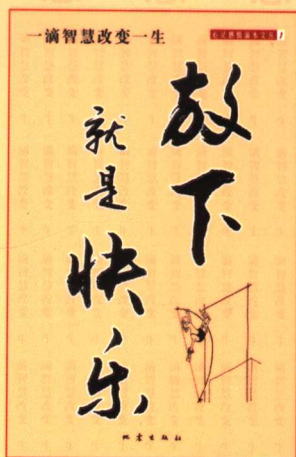 一滴智慧改变一生
放下
就是
快乐
地震出版社